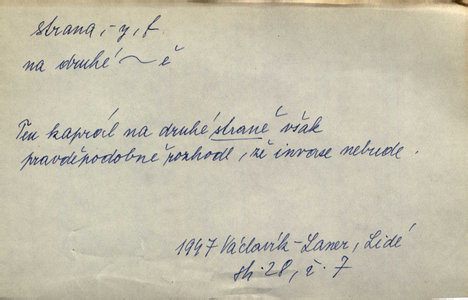 strana, -y, f.
na druhé ~ ě
Ten kaprál na druhé straně však
pravděpodobně rozhodl, že invase nebude.
1947 Václavík-Laner, Lidé
str. 28, č. 7